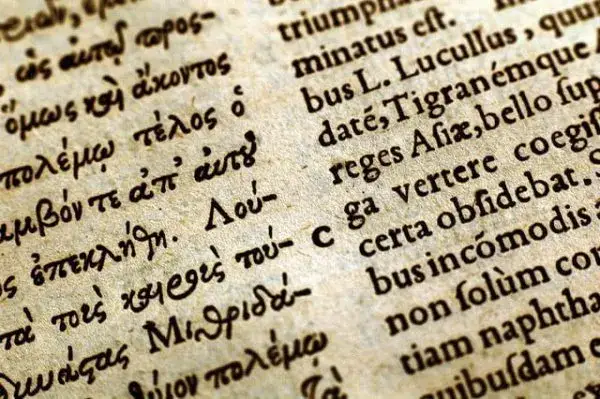 ὡς αὐτῷ προσ-
ὅμως καὶ ἄκοντος
πολέμῳ τέλος ὁ
αμβόν τε ἀπ᾽ αὐτοῦ
ς ἐπεκλήθη. Λού-
τὰ τοὺς καιροὺς τού-
Μιθριδά-
πολέμῳ
τὰ
C
triumpha
minatus eſt.
bus L. Lucullus, quum
datę, Tigranémque A
reges Aſiæ, bello ſup
ga vertere coegiſ
certa obſidebat. S
bus incõmodis a
non ſolùm con
tiam naphtha
quibuſdam e